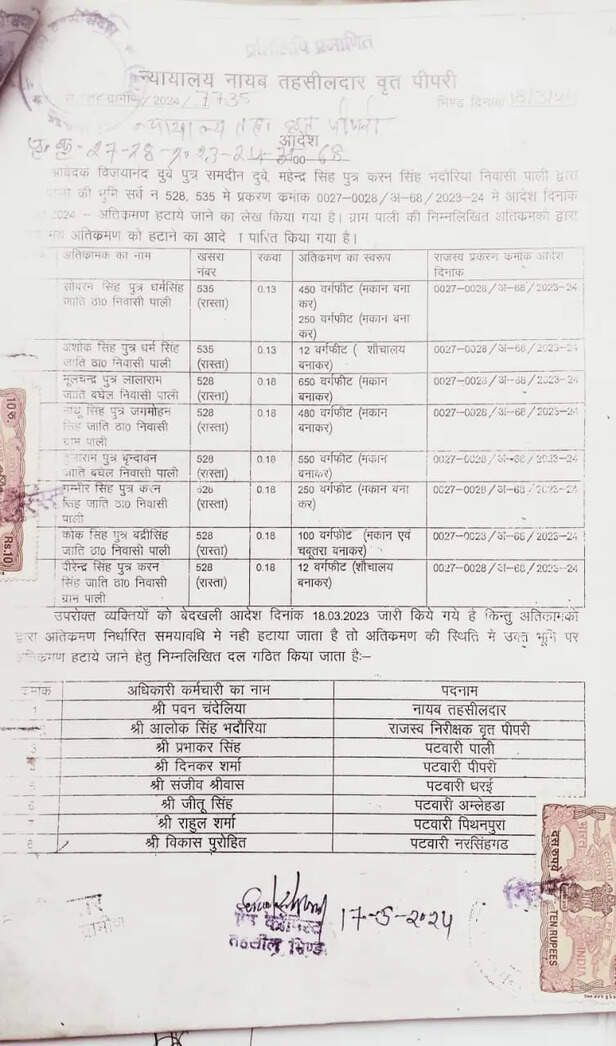 प्रतिलिपि प्रमाणित
न्यायालय नायब तहसीलदार वृत पीपरी
/2024/7735 भिण्ड दिनांक 18/3/24
न्यायालय तह० वृत पीपरी
आदेश
27-28-2023-24 68
आवेदक विजयानंद दुबे पुत्र रामदीन दुबे, महेन्द्र सिंह पुत्र करन सिंह भदौरिया निवासी पाली द्वारा
की भूमि सर्व न 528, 535 मे प्रकरण कमांक 0027-0028/अ-68/2023-24 मे आदेश दिनांक
2024 - अतिकमण हटाये जाने का लेख किया गया है। ग्राम पाली की निम्नलिखित अतिकमको द्वारा
अतिकमण को हटाने का आदे ा पारित किया गया है।
अतिकामक का नाम खसरा नंबर रकवा अतिकमण का स्वरूप राजस्व प्रकरण कमांक आदेश दिनांक
सोबरन सिंह पुत्र धर्मसिंह 535 0.13 450 वर्गफीट (मकान बना 0027-0028/अ-68/2023-24
जाति ठा0 निवासी पाली (रास्ता) कर)
250 वर्गफीट (मकान बना
कर)
अशोक सिंह पुत्र धर्म सिंह 535 0.13 12 वर्गफीट ( शौचालय 0027-0028/अ-68/2023-24
जाति ठा0 निवासी पाली (रास्ता) बनाकर)
मूलचन्द्र पुत्र लालाराम 528 0.18 650 वर्गफीट (मकान 0027-0028/अ-68/2023-24
जाति बघेल निवासी पाली (रास्ता) बनाकर)
नाथू सिंह पुत्र जगमोहन 528 0.18 480 वर्गफीट (मकान 0027-0028/अ-68/2023-24
सिंह जाति ठा0 निवासी (रास्ता) बनाकर)
ग्राम पाली
पुत्र बृन्दावन 528 0.18 550 वर्गफीट (मकान 0027-0028/अ-68/2023-24
जाति बघेल निवासी पाली (रास्ता) बनाकर)
गम्भीर सिंह पुत्र करन 528 0.18 250 वर्गफीट (मकान बना 0027-0028/अ-68/2023-24
सिंह जाति ठा0 निवासी (रास्ता) कर)
पाली
कोक सिंह पुत्र बद्रीसिंह 528 0.18 100 वर्गफीट (मकान एवं 0027-0028/अ-68/2023-24
जाति ठा0 निवासी पाली (रास्ता) चबूतरा बनाकर)
वीरेन्द्र सिंह पुत्र करन 528 0.18 12 वर्गफीट (शौचालय 0027-0028/अ-68/2023-24
सिंह जाति ठा0 निवासी (रास्ता) बनाकर)
ग्राम पाली
उपरोक्त व्यक्तियों को बेदखली आदेश दिनांक 18.03.2023 जारी किये गये है किन्तु अतिकामको
द्वारा अतिकमण निर्धारित समयावधि मे नही हटाया जाता है तो अतिकमण की स्थिति मे उक्त भूमि पर
अतिकमण हटाये जाने हेतु निम्नलिखित दल गठित किया जाता हैः-
कमांक अधिकारी कर्मचारी का नाम पदनाम
1 श्री पवन चंदेलिया नायब तहसीलदार
श्री आलोक सिंह भदौरिया राजस्व निरीक्षक वृत पीपरी
3 श्री प्रभाकर सिंह पटवारी पाली
श्री दिनकर शर्मा पटवारी पीपरी
5 श्री संजीव श्रीवास पटवारी धरई
6 श्री जीतू सिंह पटवारी अम्लेहडा
7 श्री राहुल शर्मा पटवारी पिथनपुरा
8 श्री विकास पुरोहित पटवारी नरसिंहगढ
17-5-2024
तहसील भिण्ड
10 रु.
Rs.10
दस रुपये
TEN RUPEES
भारत
INDIA